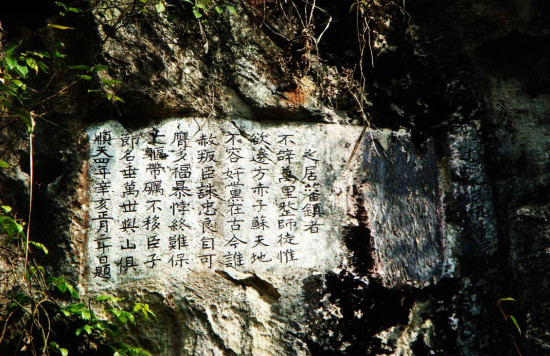 之居藩鎮者
不辭萬里整師徒惟
欲邊方赤子蘇天地
不容奸黨在古今誰
赦叛臣誅忠良自可
膺多福暴悖終難保
一軀帶礪不移臣子
節名垂萬世與山俱
順天四年辛亥正月二日題